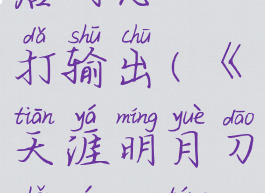 dǎ shū chū
打输出(《
tiān yá míng yuè dāo
天涯明月刀